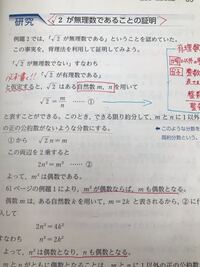 研究 √2 が無理数であることの証明
例題 2 では，「√2 が無理数である」ということを認めていた。
この事実を，背理法を利用して証明してみよう。
「√2 が無理数でない」すなわち
「√2 が有理数である」
と仮定すると，√2 はある自然数 m，n を用いて
√2 = m/n …… ①
と表すことができる。このとき，できる限り約分して，m と n に 1 以外
の正の公約数がないような分数にする。
← このような分数を
① から √2 n = m
この両辺を 2 乗すると
2n² = m² …… ②
よって，m² は偶数である。
61 ページの例題 1 により，m² が偶数ならば，m も偶数となる。
偶数 m は，ある自然数 k を用いて，m = 2k と表されるから，② に代
入して
2n² = 4k²
すなわち n² = 2k²
よって，n² は偶数となり，n も偶数となる。